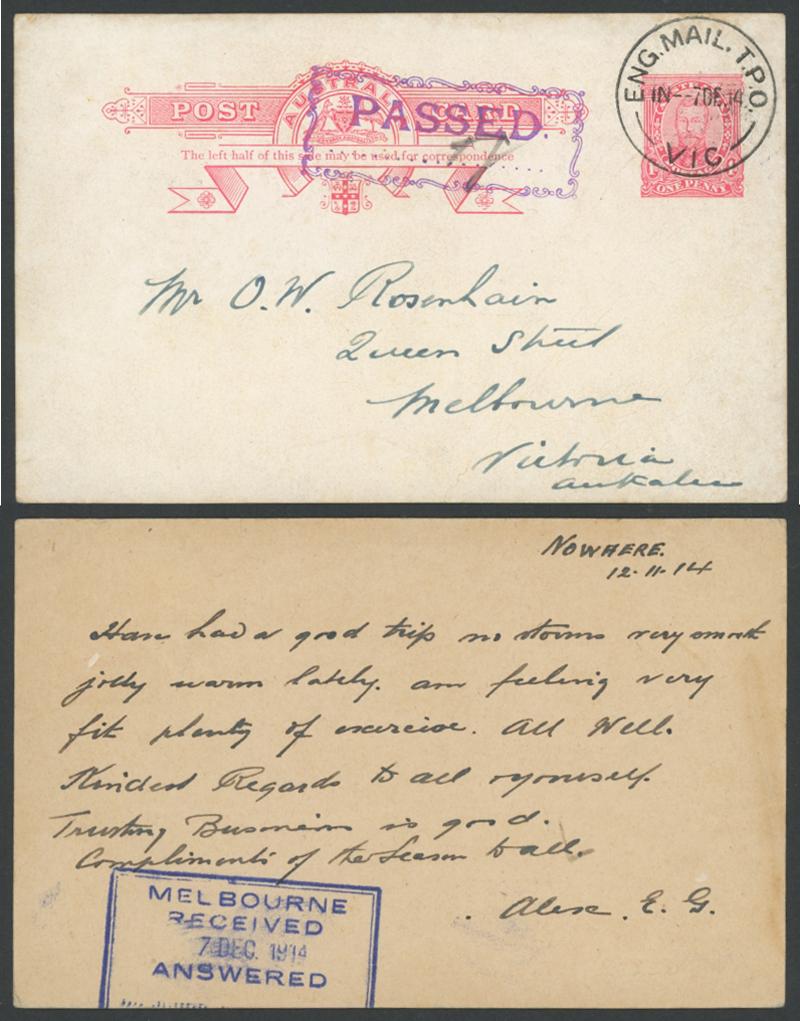 POST AUSTRALIA CARD
PASSED.
The left half of this side may be used for correspondence
ENG. MAIL. T.P.O.
IN - 7 DE 14
VIC
ONE PENNY
Mr O.W. Rosenhain
Queen Street
Melbourne
Victoria
Australia
NOWHERE.
12.11.14
Have had a good trip no storms very smooth
jolly warm lately. am feeling very
fit plenty of exercise. All Well.
Kindest Regards to all & yourself.
Trusting Business is good.
Compliments of the Season to all.
Alex. E. G.
MELBOURNE
RECEIVED
7 DEC. 1914
ANSWERED